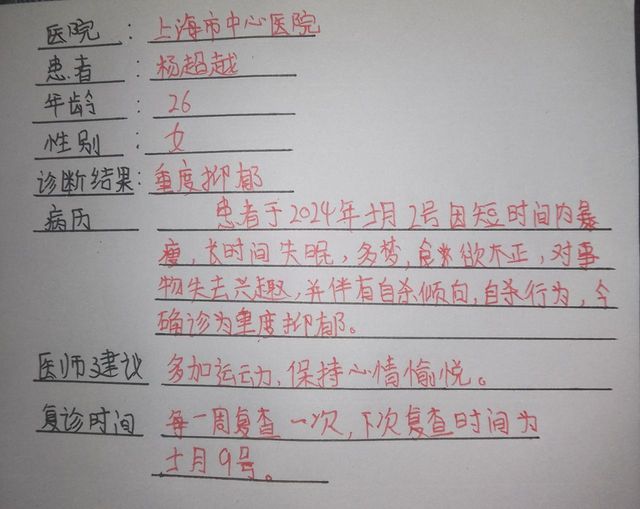 医院 : 上海市中心医院
患者 : 杨超越
年龄 : 26
性别 : 女
诊断结果: 重度抑郁
病历 患者于2024年十月2号因短时间内暴
瘦,长时间失眠,多梦,食欲不正,对事
物失去兴趣,并伴有自杀倾向,自杀行为,今
确诊为重度抑郁。
医师建议 多加运动,保持心情愉悦。
复诊时间 每一周复查一次,下次复查时间为
十月9号。